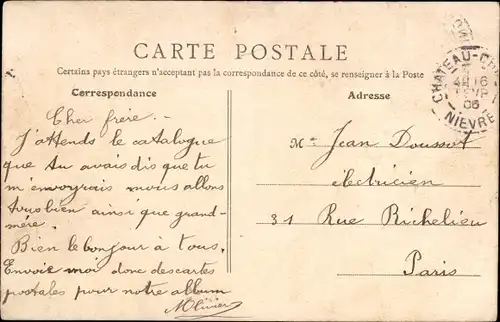 CARTE POSTALE
Certains pays étrangers n'acceptant pas la correspondance de ce côté, se renseigner à la Poste
Correspondance
Cher frère.
J'attends le catalogue
que tu avais dis que tu
m'envoyrais nous allons
tous bien ainsi que grand-
mère.
Bien le bonjour à tous.
Envoie moi donc des cartes
postales pour notre album
M Olivier
Adresse
Mr Jean Doussot
électricien
31 Rue Richelieu
Paris
CHATEAU-CH
16
06
NIEVRE